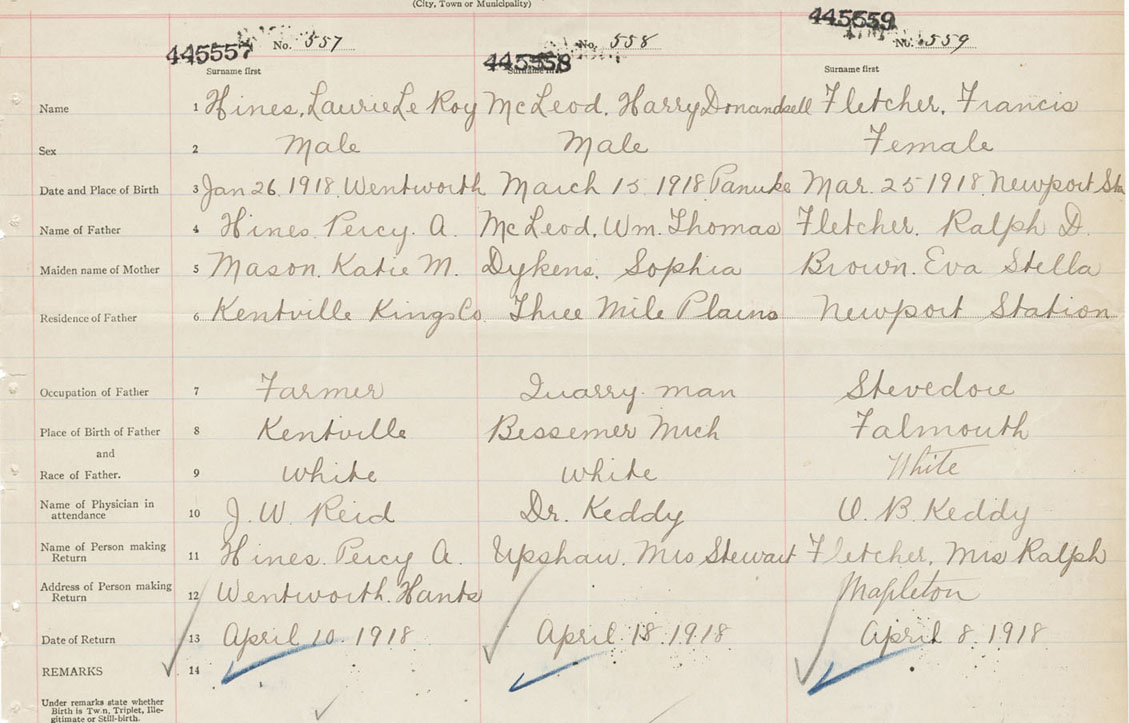 (City, Town or Municipality)
445557 No. 557 445558 No. 558 445559 No. 559
Surname first Surname first Surname first
Name 1 Hines, Laurie Le Roy McLeod, Harry Fletcher, Francis
Sex 2 Male Male Female
Date and Place of Birth 3 Jan 26. 1918. Wentworth March 15 1918 Panuke Mar. 25 1918. Newport Sta
Name of Father 4 Hines. Percy. A. McLeod, Wm. Thomas Fletcher. Ralph D.
Maiden name of Mother 5 Mason. Katie M. Dykens. Sophia Brown. Eva Stella
Residence of Father 6 Kentville Kings Co Three Mile Plains Newport Station
Occupation of Father 7 Farmer Quarry man Stevedore
Place of Birth of Father 8 Kentville Bessemer Mich Falmouth
and
Race of Father. 9 White White White
Name of Physician in
attendance 10 J. W. Reid Dr. Keddy O. B. Keddy
Name of Person making
Return 11 Hines. Percy A. Upshaw. Mrs Stewart Fletcher, Mrs Ralph
Address of Person making
Return 12 Wentworth. Hants Mapleton
Date of Return 13 April 10. 1918 April 18. 1918 April 8. 1918
REMARKS 14
Under remarks state whether
Birth is Twin, Triplet, Ille-
gitimate or Still-birth.